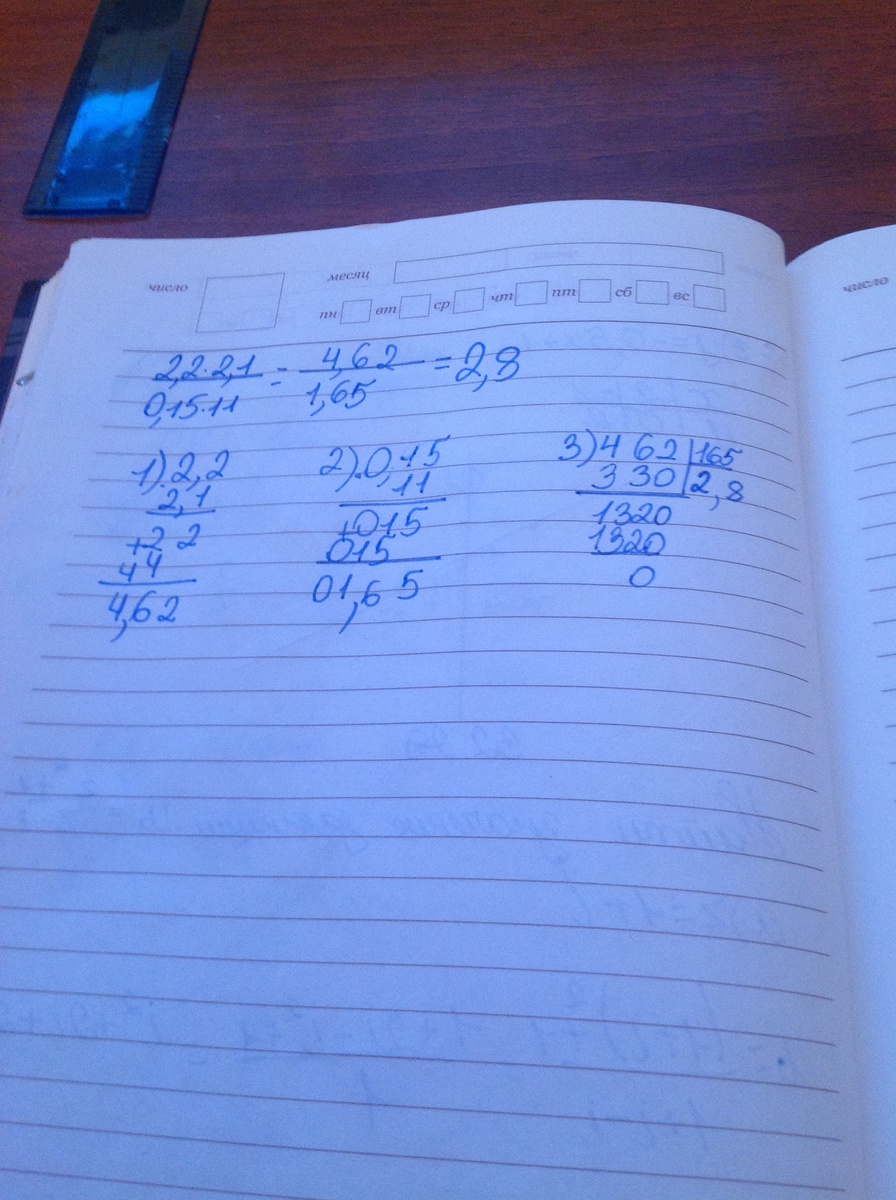 число месяц
пн вт ср чт пт сб вс
число
2,2·2,1 = 4,62 = 2,8
0,15·11 1,65
1) 2,2 2) 0,15 3) 462 165
2,1 11 330 2,8
+22 +015 1320
44 015 1320
4,62 01,65 0